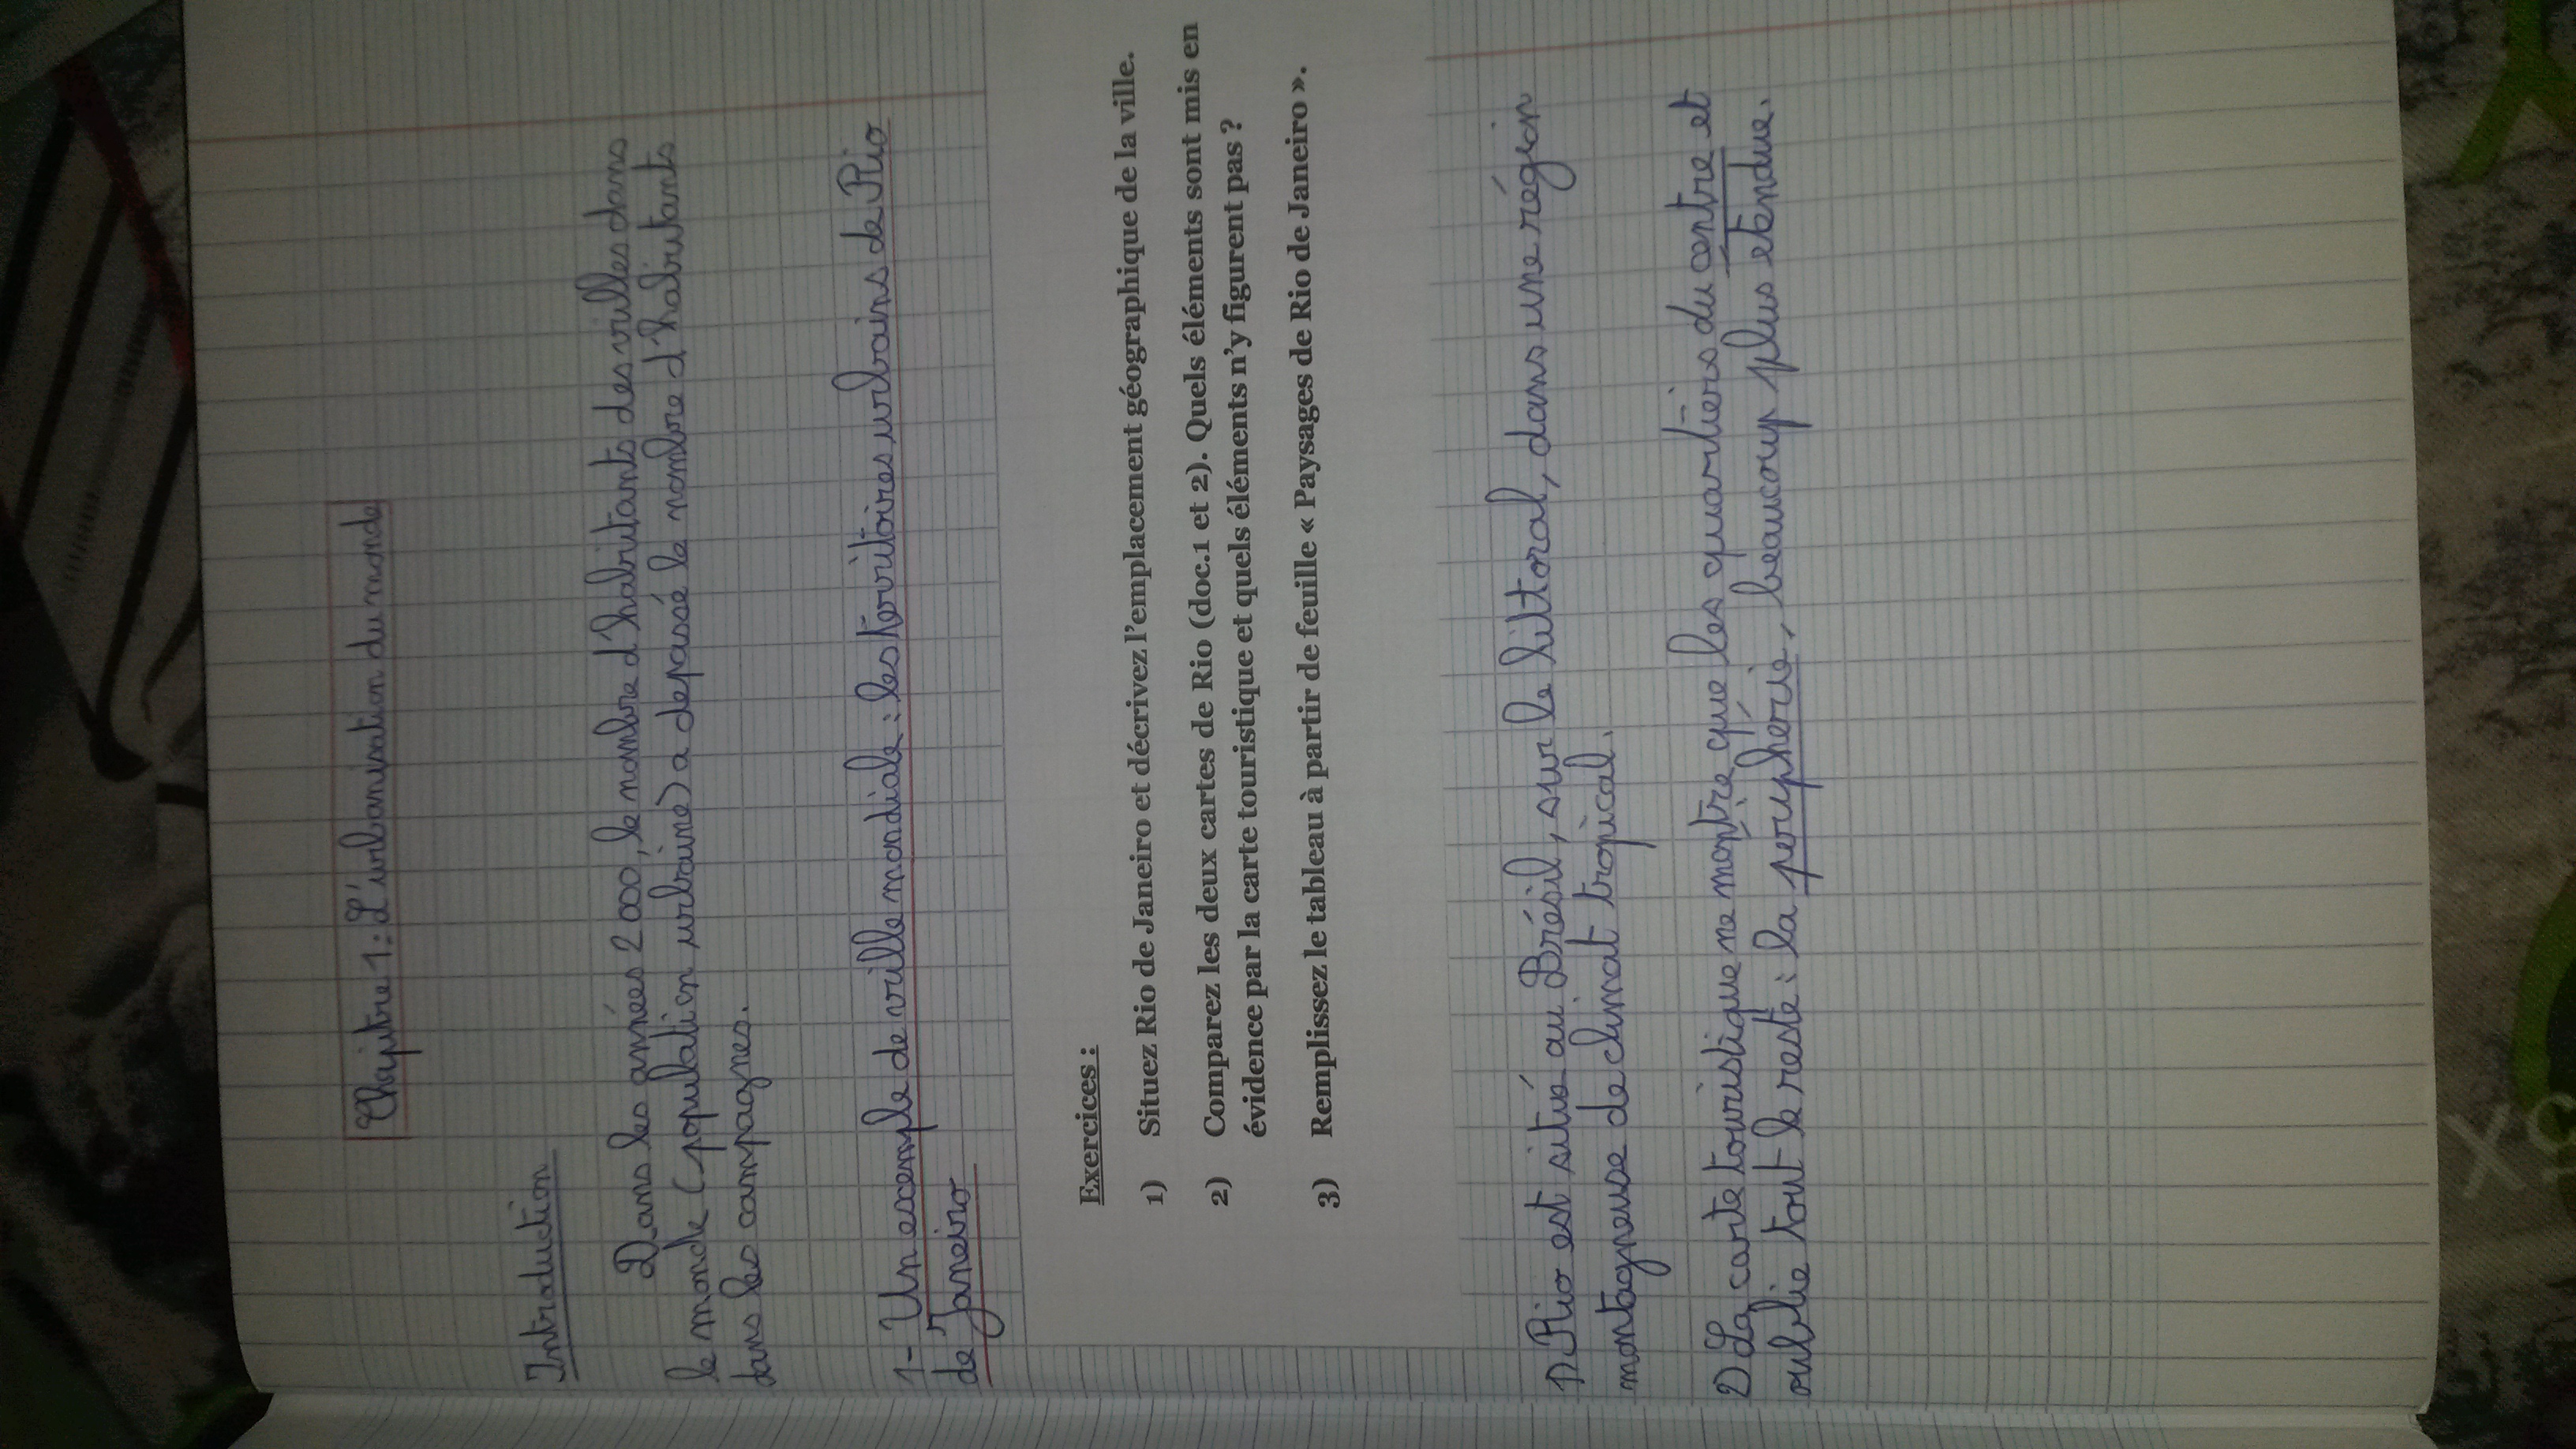 Chapitre 1: L'urbanisation du monde
Introduction
Dans les années 2000, le nombre d'habitants des villes dans
le monde (population urbaine) a depassé le nombre d'habitants
dans les campagnes.
1- Un exemple de ville mondiale : les territoires urbains de Rio
de Janeiro
Exercices :
1) Situez Rio de Janeiro et décrivez l'emplacement géographique de la ville.
2) Comparez les deux cartes de Rio (doc.1 et 2). Quels éléments sont mis en
évidence par la carte touristique et quels éléments n'y figurent pas ?
3) Remplissez le tableau à partir de feuille « Paysages de Rio de Janeiro ».
1) Rio est situé au Brésil, sur le littoral, dans une région
montagneuse de climat tropical.
2) La carte touristique ne montre que les quartiers du centre et
oublie tout le reste : la périphérie, beaucoup plus étendue.